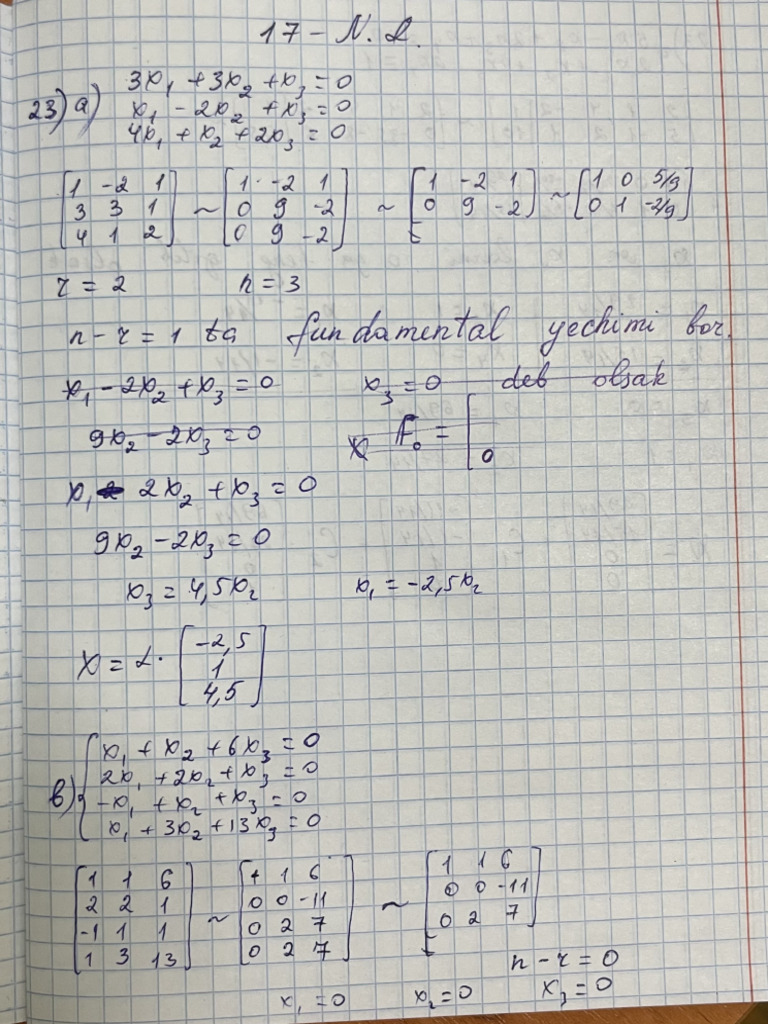 17 - N. L.
23) a) 3x₁ + 3x₂ + x₃ = 0
x₁ - 2x₂ + x₃ = 0
4x₁ + x₂ + 2x₃ = 0
[1 -2 1] [1 -2 1] [1 -2 1] [1 0 5/9]
[3 3 1] ~ [0 9 -2] ~ [0 9 -2] ~ [0 1 -2/9]
[4 1 2] [0 9 -2]
r = 2 n = 3
n - r = 1 ta fundamental yechimi bor.
x₁ - 2x₂ + x₃ = 0 x₃ = 0 deb olsak
9x₂ - 2x₃ = 0 X F₀ = [
0
x₁ - 2x₂ + x₃ = 0
9x₂ - 2x₃ = 0
x₃ = 4,5x₂ x₁ = -2,5x₂
X = α · [-2,5]
[1]
[4,5]
в) { x₁ + x₂ + 6x₃ = 0
2x₁ + 2x₂ + x₃ = 0
-x₁ + x₂ + x₃ = 0
x₁ + 3x₂ + 13x₃ = 0
[1 1 6] [1 1 6] [1 1 6]
[2 2 1] ~ [0 0 -11] ~ [0 0 -11]
[-1 1 1] [0 2 7] [0 2 7]
[1 3 13] [0 2 7]
n - r = 0
x₁ = 0 x₂ = 0 x₃ = 0